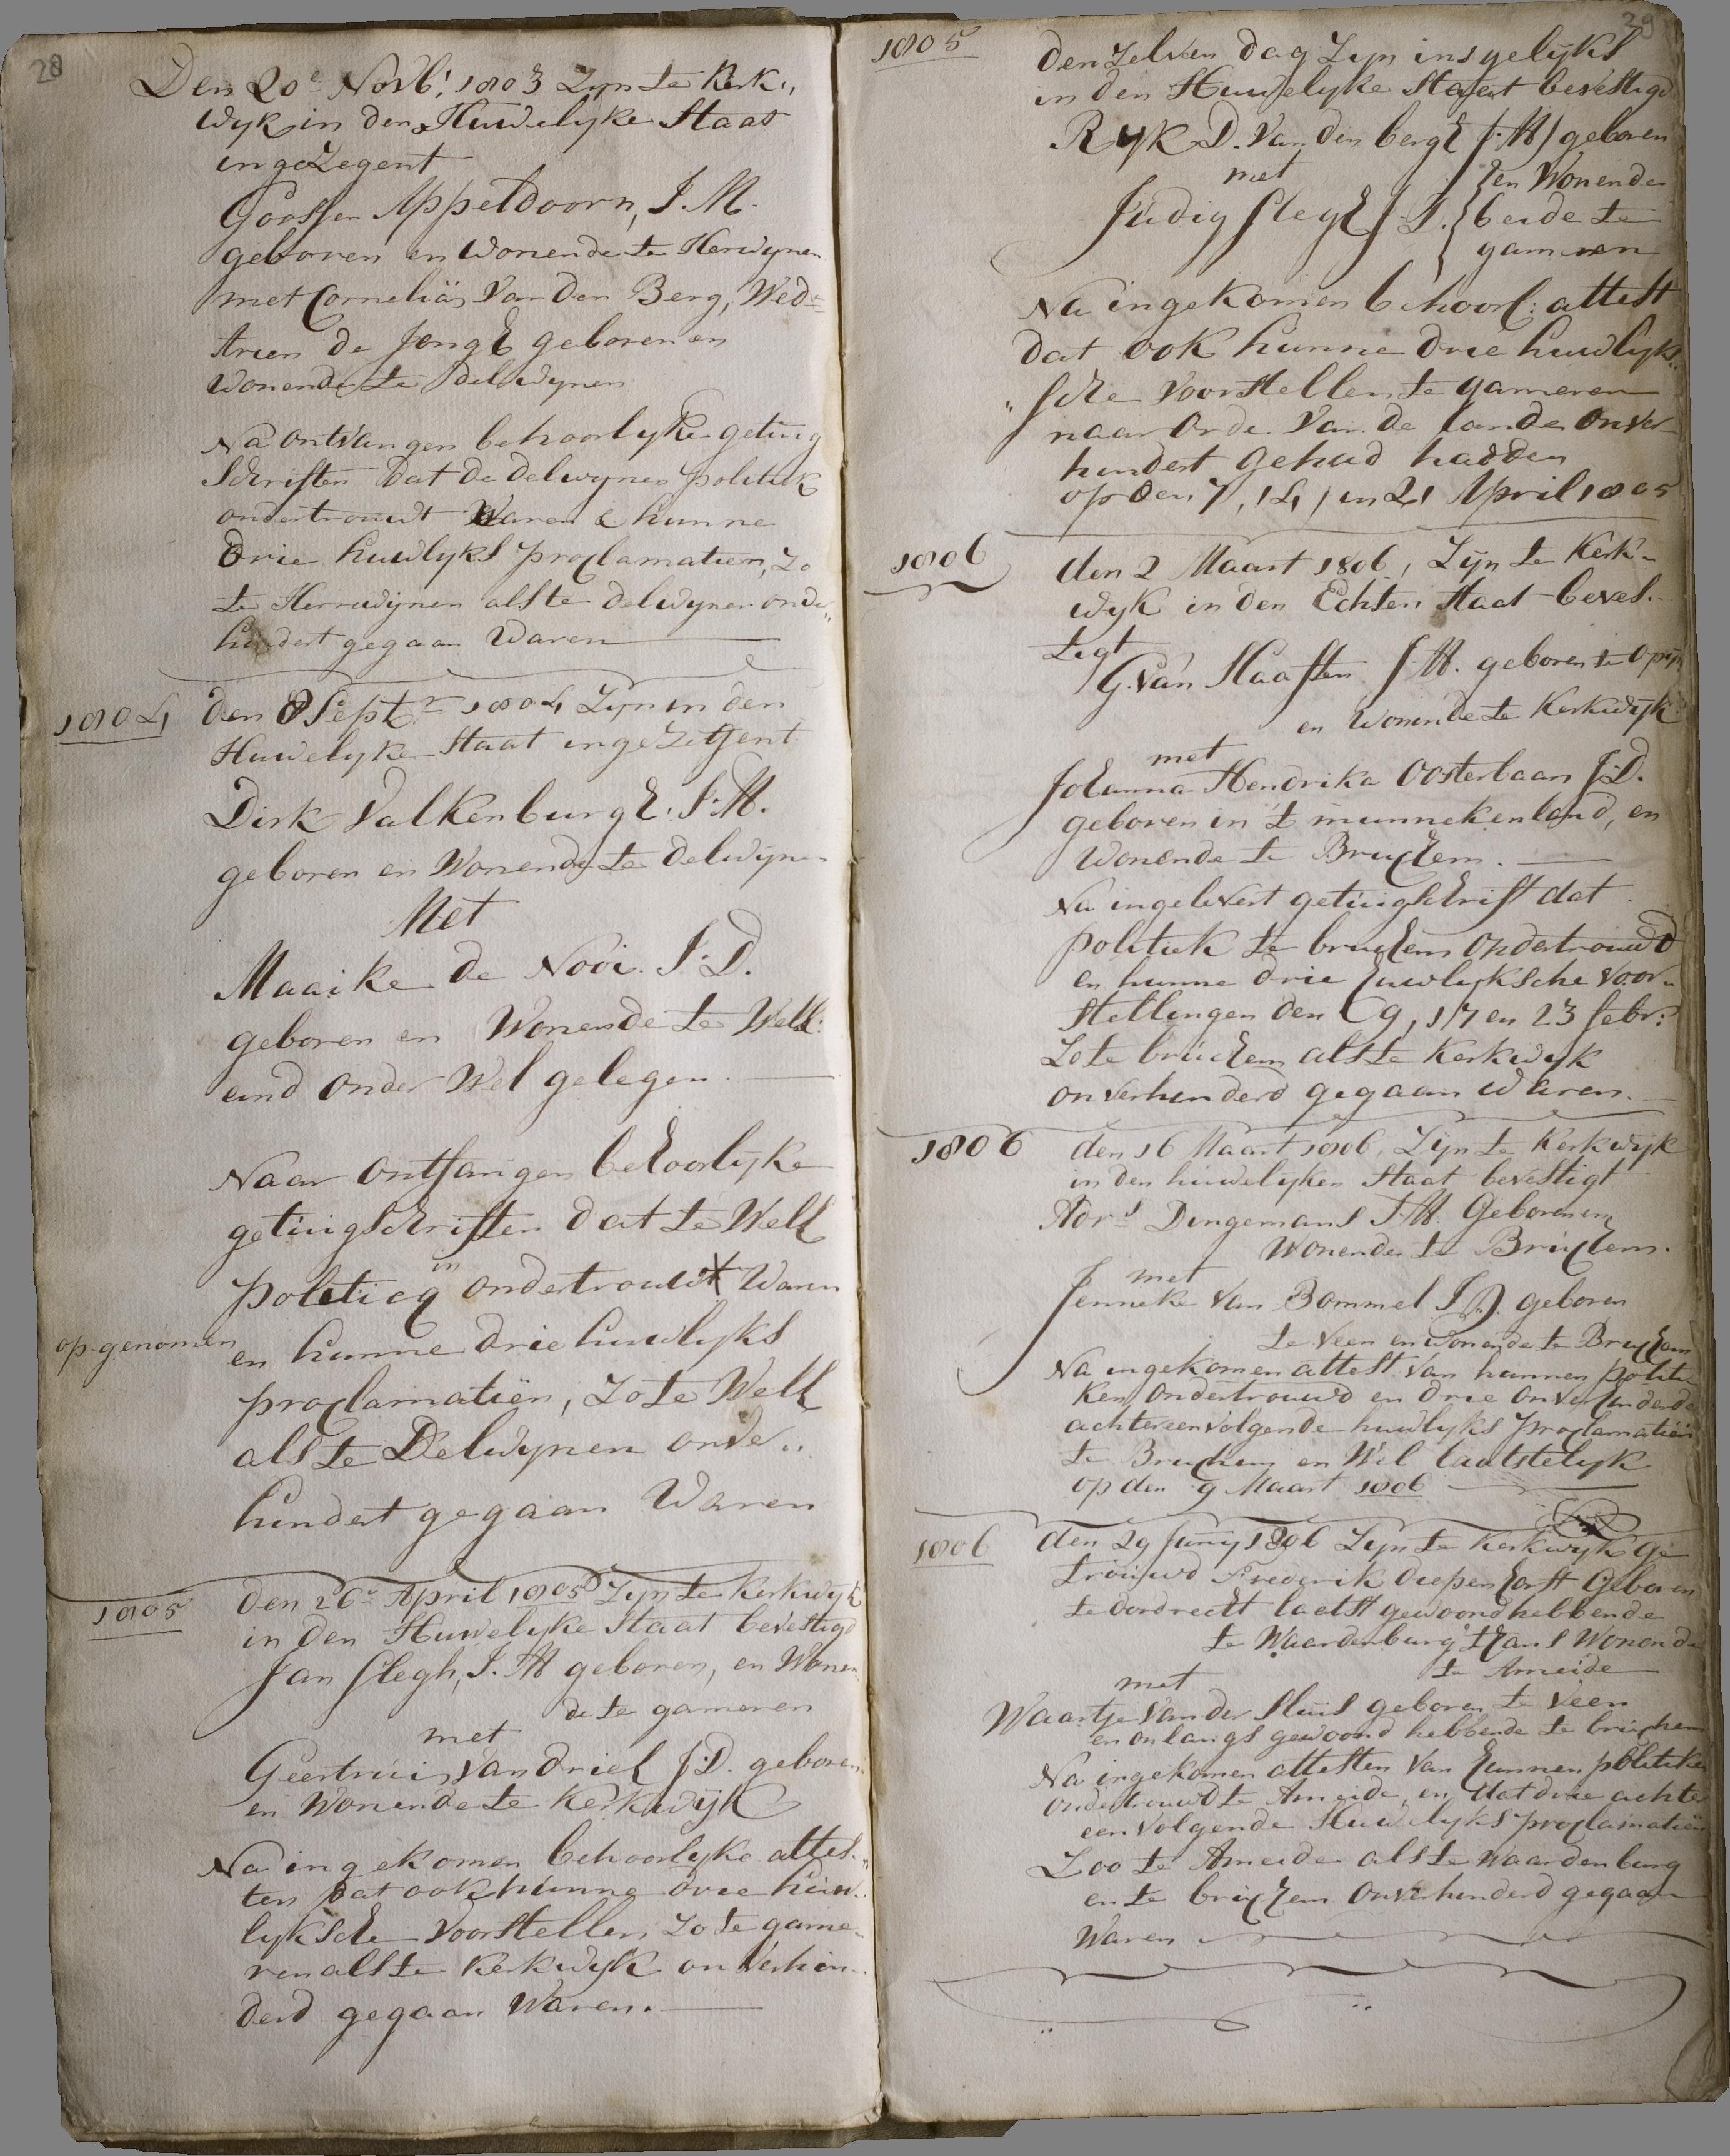 28
Den 20e Novb: 1803 Zyn te Kerk,,
wyk in den Huwelyke Staat
ingezegent
Goossen Appeldoorn, J. M.
geboren en Wonende te Herwynen
met Cornelia Van Den Berg, Wed:
Arien de Jongh geboren en
Wonende te Delwynen
Na ontvangen behoorlyke getuig
Schriften Dat De Delwynen politiek
ondertrouwt Waren & hunne
Drie huwlyks proclamatien, Zo
te Herrwijnen als te Delwynen onve,,
hindert gegaan Waren
1804
den 8 Septr 1804 Zyn in den
Huwelyke Staat ingezegent
Dirk Valkenburgh. J: M.
geboren en Wonende te Delwijnen
Met
Maaike de Nooi. J: D.
geboren en Wonende te Well
eind onder Wel gelegen.
Naar ontfangen behoorlyke
getuigschriften dat te Well
politicq in ondertrouwt Waren
op-genomen
en hunne drie huwlyks
proclamatiën, Zo te Well
als te Delwynen onve,,
hindert gegaan Waren
1805
den 26e April 1805 Zyn te Kerkwyk
in den Huwelyke Staat bevestigd
Jan Slegh, J. M geboren, en Wonen
de te gameren
met
Geertrui van Driel J:D. geboren
en Wonende te Kerkwijk
Na ingekomen behoorlyke attes,,
ten dat ook hunne drie huw,,
lyksche voorstellen Zo te game,,
ren als te Kerkwijk onverhin,,
derd gegaan Waren.
29
1805
den zelven dag Zyn insgelyks
in den Huwelyke Staat bevestigd
Ryk D. Van den bergh J: M geboren
met
en Wonende
Judig Slegh J. D. beide te
gameren
Na ingekomen behoorl: attest
dat ook hunne drie huwlyk,,
,,sche voorstellen te gameren
naar orde Van de lande onver
hindert gehad hadden
op den 7, 14, en 21 April 1805
1806
den 2 Maart 1806, Zijn te Kerk-
wyk in den Echten Staat beves-
tigt
G. Van Haaften J: M. geboren te Opijn
en Wonende te Kerkwijk
met
Johanna Hendrika Oosterbaan J:D.
geboren in 't munnekenland, en
Wonende te Bruchem.
Na ingelevert getuigschrift dat
politiek te bruchem ondertrouwd
en hunne drie huwlyksche voor-
stellingen den 9, 17 en 23 febr:
Zo te bruchem als te Kerkwyk
onverhinderd gegaan waren.
1806
den 16 Maart 1806, Zijn te Kerkwijk
in den huwelyken Staat bevestigt
Adrs Dingemans J: M. Geboren en
Wonende te Bruchem.
met
Jenneke van Bommel J. D. geboren
te Veen en wonende te Bruchem
Na ingekomen attest van hunnen politie
ken ondertrouwd en drie onverhinderde
achtereenvolgende huwlyks proclamatien
te Bruchem en Wel laatstelyk
op den 9 Maart 1806
1806
den 29 Juny 1806 Zyn te Kerkwyk ge
trouwd Frederik Diepenhorst Geboren
te dordrecht laatst gewoond hebbende
te Waardenburg thans Wonende
te Ameide
met
Waartje van der Sluis geboren te Veen
en onlangs gewoond hebbende te bruchem
Na ingekomen attesten van hunnen politieken
ondertrouwd te Ameide, en dat drie achter
een volgende Huwlyks proclamatien
Zoo te Ameide als te Waardenburg
en te bruchem onverhinderd gegaan
Waren